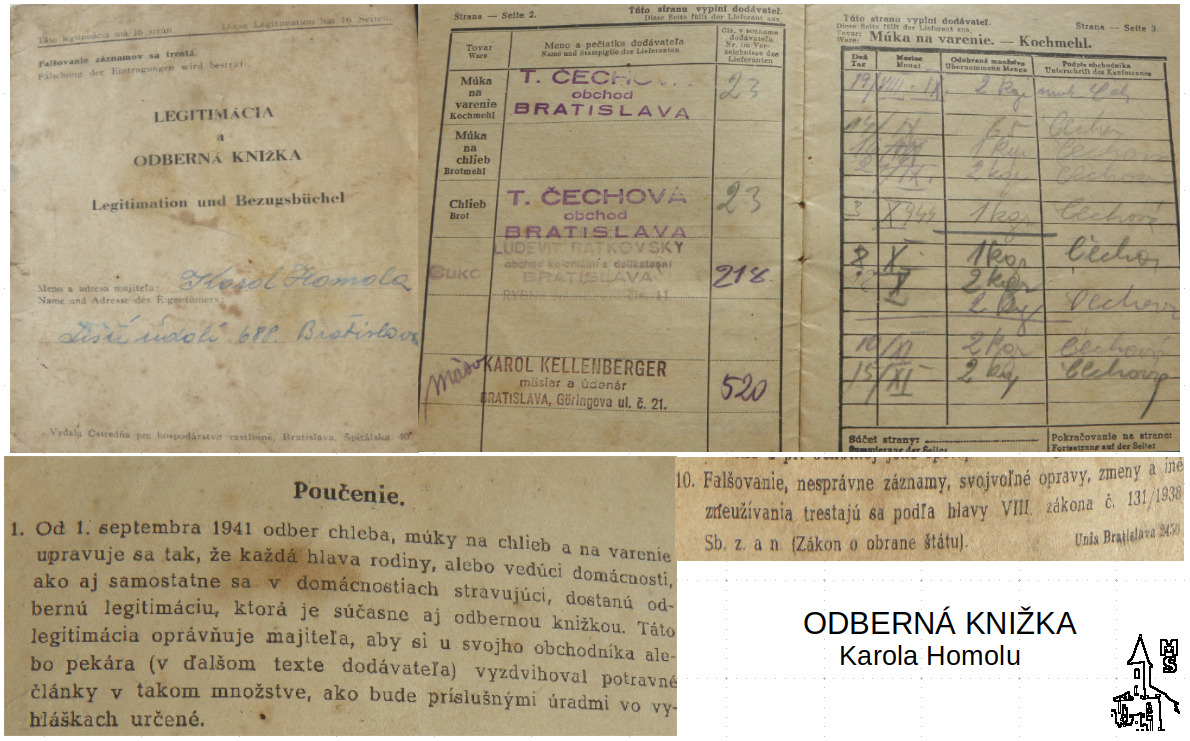 Táto legitimácia má 16 strán.
Diese Legitimation hat 16 Seiten.
Falšovanie záznamov sa trestá.
Fälschung der Eintragungen wird bestraft.
LEGITIMÁCIA
a
ODBERNÁ KNIŽKA
Legitimation und Bezugsbüchel
Meno a adresa majiteľa: Karol Homola
Name und Adresse des Eigentümers
údolí 688. Bratislava
Vydala Ústredňa pre hospodárstvo rastlinné, Bratislava, Špitálska 40
Strana — Seite 2.
Túto stranu vyplní dodávateľ.
Diese Seite füllt der Lieferant aus.
Tovar
Ware
Meno a pečiatka dodávateľa
Name und Stampiglie des Lieferanten
Čís. v sozname
dodávateľa
Nr. im Ver-
zeichnisse des
Lieferanten
Múka
na
varenie
Kochmehl
T. ČECHOVÁ
obchod
BRATISLAVA
23
Múka
na
chlieb
Brotmehl
Chlieb
Brot
T. ČECHOVÁ
obchod
BRATISLAVA
23
Cukor
ĽUDEVÍT RATKOVSKÝ
obchod koloniálni a delikatesní
BRATISLAVA
218.
mäso
KAROL KELLENBERGER
mäsiar a údenár
BRATISLAVA, Göringova ul. č. 21.
520
Túto stranu vyplní dodávateľ.
Diese Seite füllt der Lieferant aus.
Strana — Seite 3.
Tovar:
Ware:
Múka na varenie. — Kochmehl.
Deň
Tag
Mesiac
Monat
Odobrané množstvo
Übernommene Menge
Podpis obchodníka
Unterschrift des Kaufmannes
19/VIII. IX. 2 kgr
14/IX 65 Čechov
1 kgr Čechová
2 kgr Čechová
3 X 944 1 kgr Čechová
8 X. 1 kgr Čechov
X 2 kgr
2 kg Čechov
10/XI 2 kgr Čechová
15/XI 2 kg Čechová
Súčet strany:
Summierung der Seite:
Pokračovanie na strane:
Fortsetzung auf der Seite:
Poučenie.
1. Od 1. septembra 1941 odber chleba, múky na chlieb a na varenie
upravuje sa tak, že každá hlava rodiny, alebo vedúci domácnosti,
ako aj samostatne sa v domácnostiach stravujúci, dostanú od-
bernú legitimáciu, ktorá je súčasne aj odbernou knižkou. Táto
legitimácia oprávňuje majiteľa, aby si u svojho obchodníka ale-
bo pekára (v ďalšom texte dodávateľa) vyzdvihoval potravné
články v takom množstve, ako bude príslušnými úradmi vo vy-
hláškach určené.
10. Falšovanie, nesprávne záznamy, svojvoľné opravy, zmeny a iné
zneužívania trestajú sa podľa hlavy VIII. zákona č. 131/1938
Sb. z. a n. (Zákon o obrane štátu).
Unia Bratislava 2450
ODBERNÁ KNIŽKA
Karola Homolu
MS